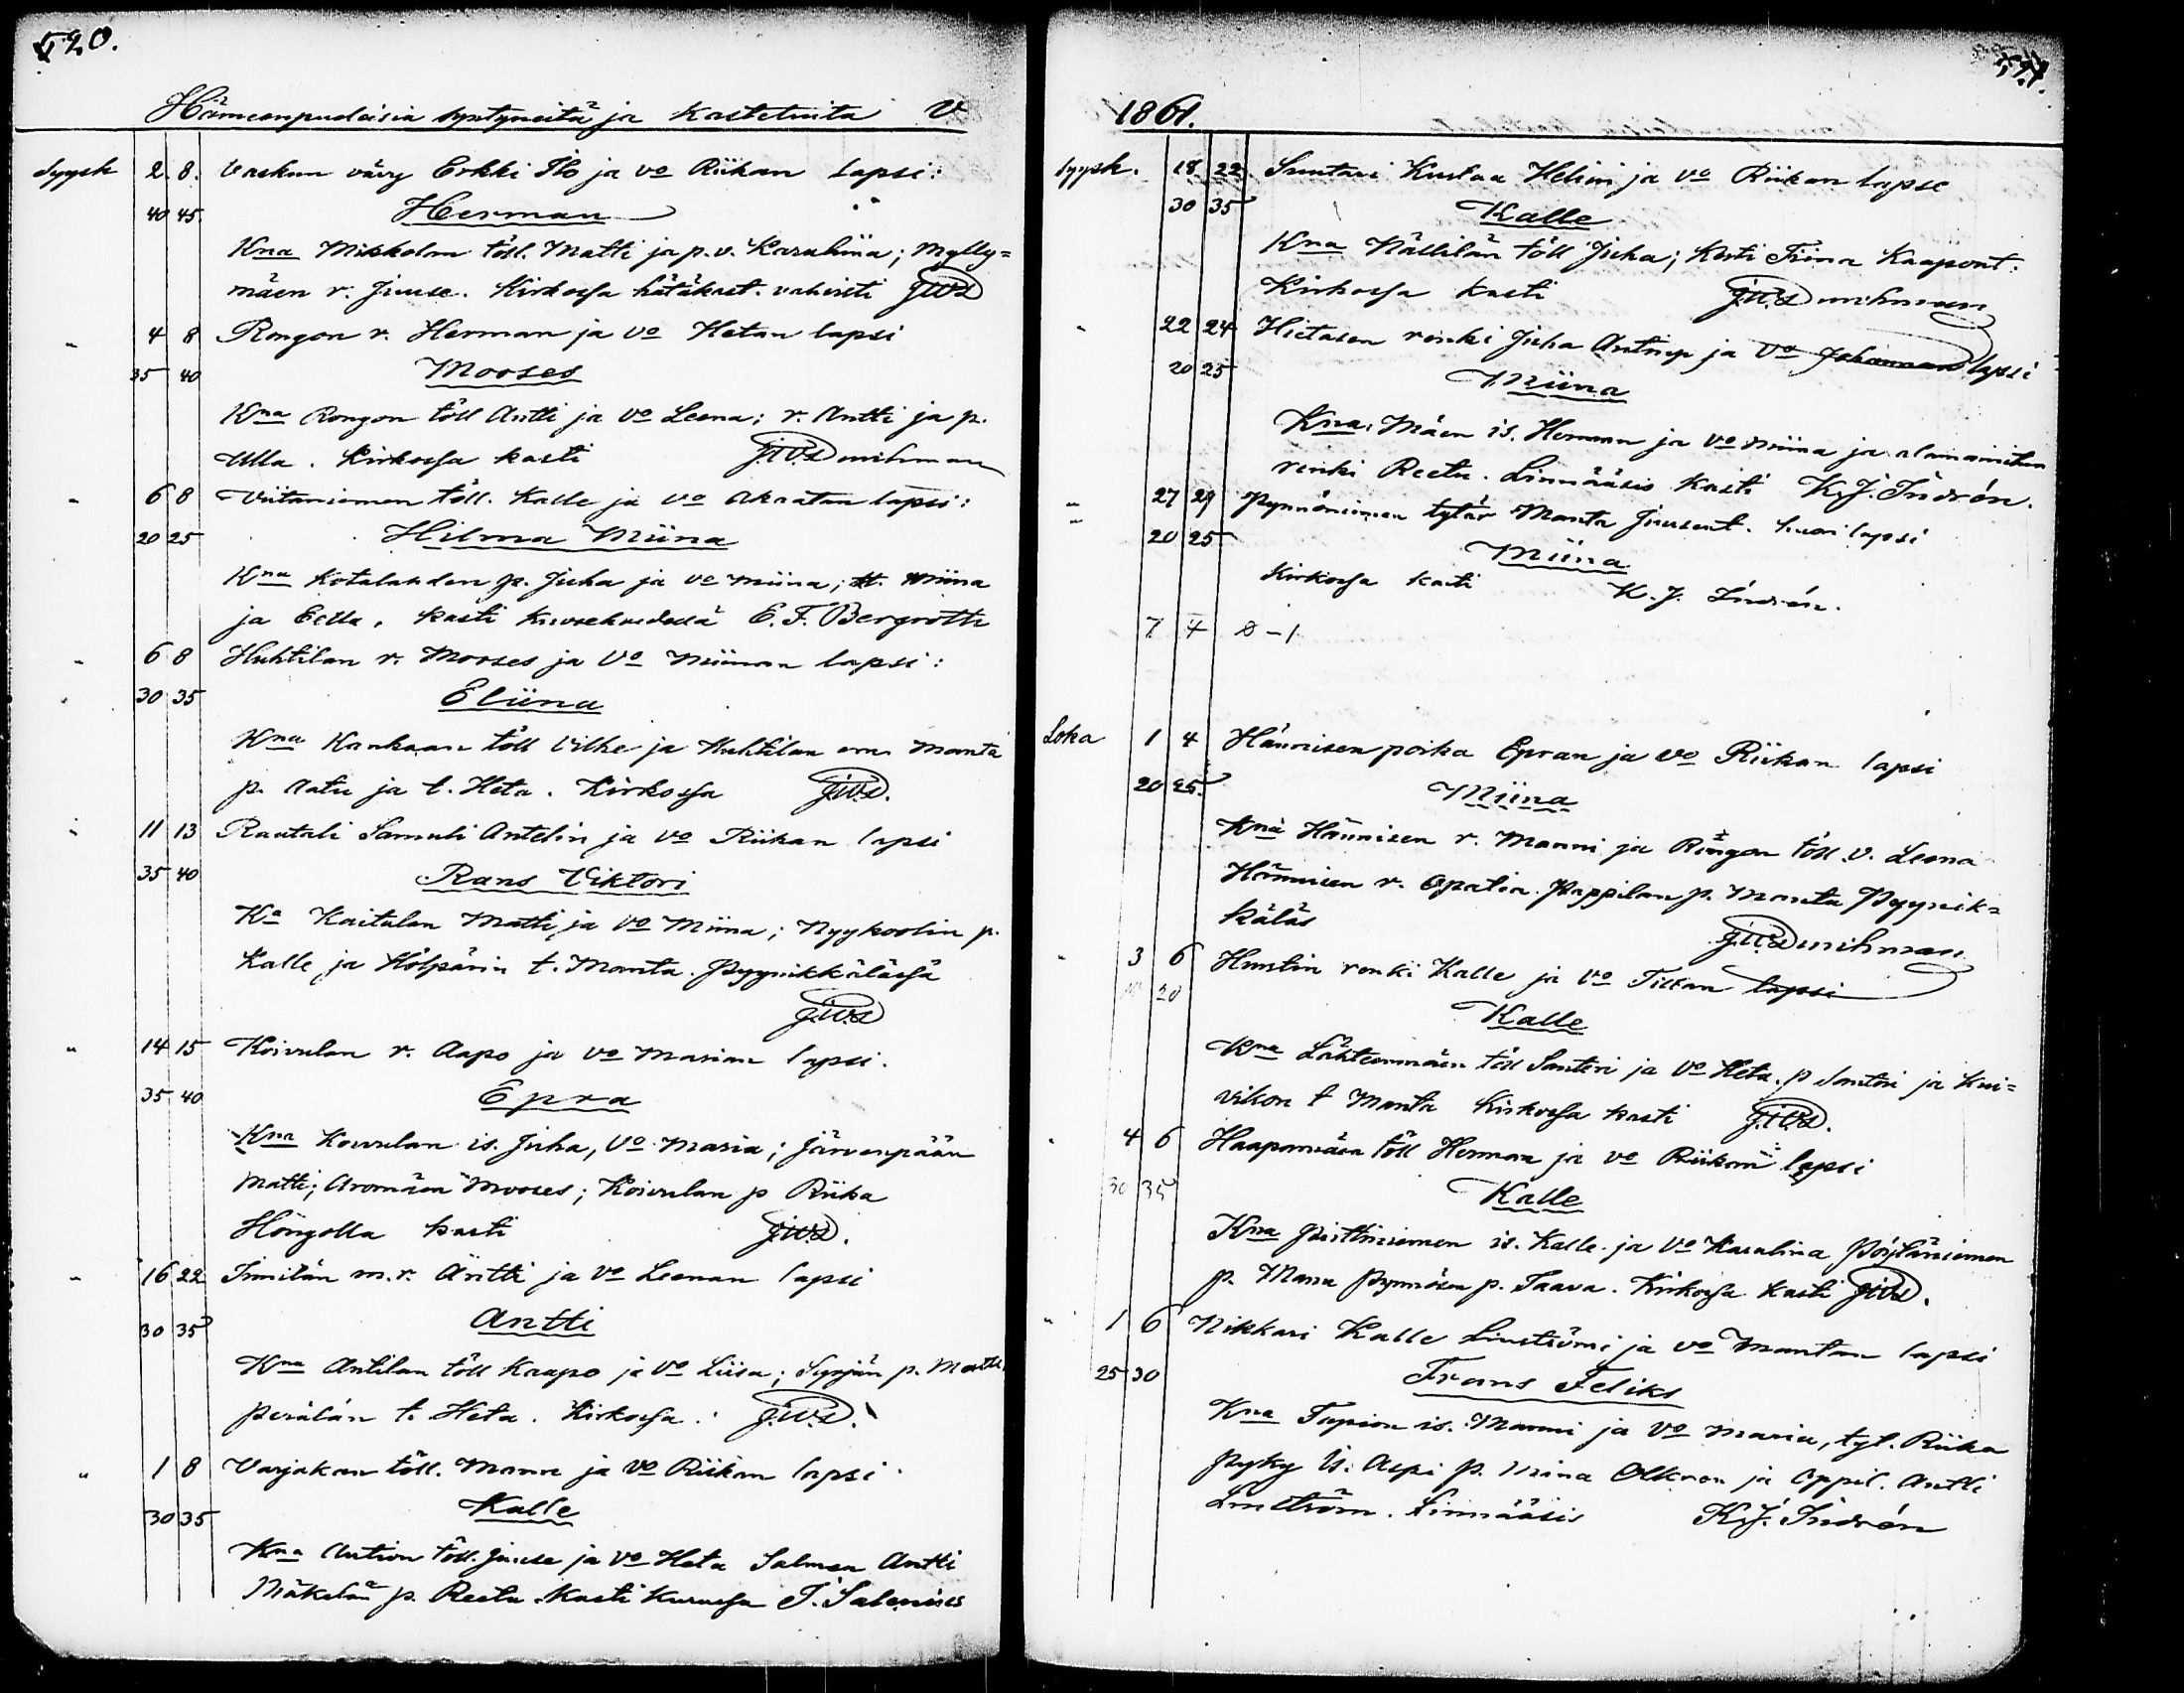 520.
Hämeenpuolaisia syntyneitä ja kastetuita V
Syysk 2 8. Vaskun vävy Erkki Ilo ja vo Riikan lapsi:
40 45 Herman
Kna Mikkolan töll. Matti ja p.v. Karuliina; Mylly=
mäen r. Juuse. Kirkossa hätäkast. vahvisti J.W.S
" 4 8 Rongon r. Herman ja vo Hetan lapsi
35 40 Mooses
Kna Rongon töll Antti ja vo Leena; r. Antti ja p.
Ulla. Kirkossa kasti J.W.S
" 6 8 Viitaniemen töll. Kalle ja vo Akaatan lapsi:
20 25 Hilma Miina
Kna Kotalahden p. Juha ja vo Miina; tt. Miina
ja Eella. kasti E. F. Bergroth
" 6 8 Huhtilan r. Mooses ja vo Miinan lapsi:
30 35 Eliina
Kna Kankaan töll Vilhe ja Huhtilan em. Manta
p. Aatu ja t. Heta. Kirkossa J.W.S.
" 11 13 Rautali Samuli Antelin ja vo Riikan lapsi
35 40 Rans Viktori
Ka Kaitalan Matti ja vo Miina; Nyykoolin p.
Kalle ja Kölpärin t. Manta. Pyynikkälässä
J.W.S
" 14 15 Koivulan r. Aapo ja vo Marian lapsi.
35 40 Epra
Kna Koivulan is. Juha, vo Maria; Järvenpään
Matti; Aromäen Mooses; Koivulan p Riika
Höngolla kasti J.W.S.
" 16 22 Simitän m.r. Antti ja vo Leenan lapsi
30 35 Antti
Kna Antilan töll Kaapo ja vo Liisa; Syrjän p. Matti
Perälän t. Heta. Kirkossa. J.W.S.
" 1 8 Varjakan töll. Mannu ja vo Riikan lapsi.
30 35 Kalle
Kna Aution töll. Juuse ja vo Heta Salmen Antti
Mäkelän p. Reetu. Kasti Kurussa J. Salenius
521.
1861.
Syysk. 18 22 Suutari Kustaa Helin ja vo Riikan lapse
30 35 Kalle
Kna Nällilän töll Juha; Kerti Tiina Kaapont.
Kirkossa kasti J.W.S
" 22 24 Hietasen renki Juha Antinp ja vo Johannan lapsi
20 25 Miina
Kna. Mäen is. Herman ja vo Miina ja alamainitun
renki Reetu. Linnääsis kasti K.J. Indrén.
" 27 29 Pynnöniemen tytär Manta Juusent. huori lapsi
20 25 Miina
Kirkossa kasti K. J. Indrén.
7 4 0-1
Loka 1 4 Hännisen poika Epran ja vo Riikan lapsi
20 25. Miina
Kna Hännisen r. Manni ja Rongon töll. v. Leena
Hännisen r. Opatia. Pappilan p. Manta Pyynik=
käläs J.W.S
" 3 6 Hunstin renki Kalle ja vo Tiltan lapsi
20 Kalle
Kna Lähteenmäen töll Santeri ja vo Heta. p Santeri ja Kui=
vikon t Manta Kirkossa kasti J.W.S.
" 4 6 Haapamäen töll Herman ja vo Riikan lapsi
30 35 Kalle
Kna Pirttiniemen is. Kalle ja vo Karulina Pöytäniemen
p. Manu Pynnösen p. Taava. Kirkossa kasti J.W.S.
" 1 6 Nikkari Kalle Linströmi ja vo Mantan lapsi
25 30 Frans Feliks
Kna Tapion is. Manni ja vo Maria, tyt. Riika
Pyky is. Aspi p. Miina Olkron ja Oppil. Antti
Linström. Linnääsis K.J. Indrén